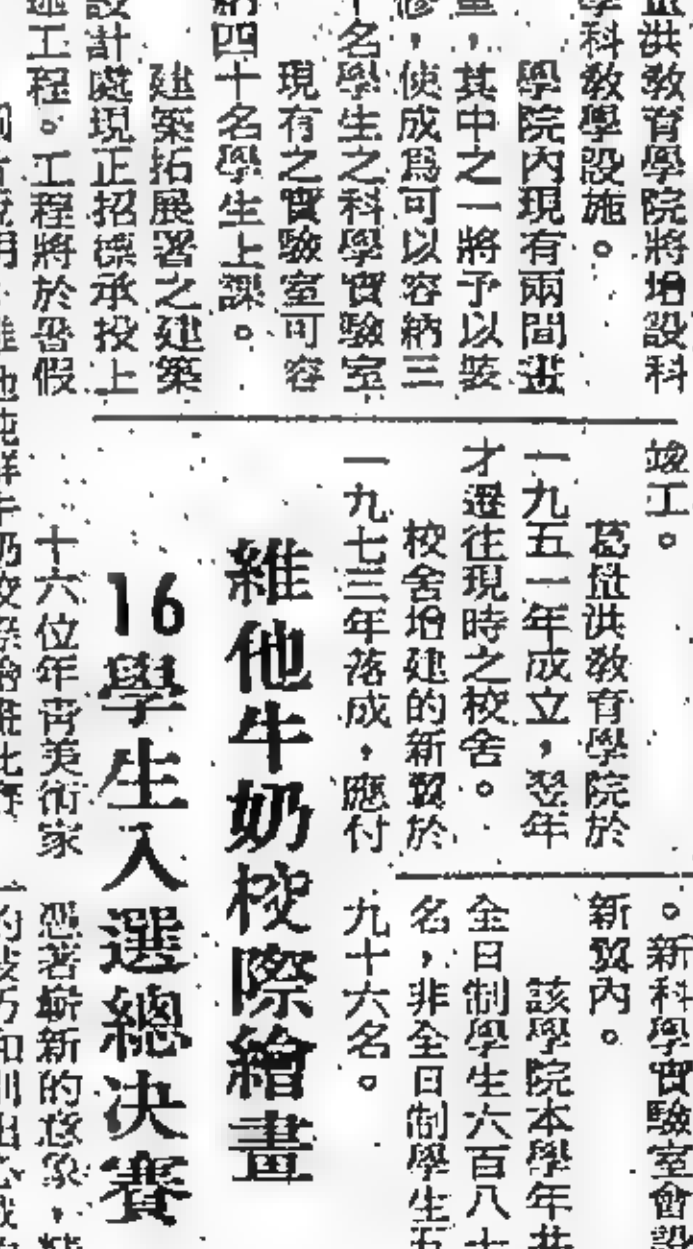 洪教育學院將增設科
學科教學設施。
學院內現有兩間畫
室，其中之一將予以裝
修，使成爲可以容納三
十名學生之科學實驗室
現有之實驗室可容
納四十名學生上課。
建築拓展署之建築
設計處現正招標承投上
述工程。工程將於暑假
竣工。
葛量洪教育學院於
一九五一年成立，翌年
才遷往現時之校舍。
校舍增建的新翼於
一九七三年落成，應付
。新科學實驗室會設
新翼內。
該學院本學年共
全日制學生六百八十
名，非全日制學生五
九十六名。
維他牛奶校際繪畫
16學生入選總決賽
十六位年青美術家
憑著嶄新的意象，